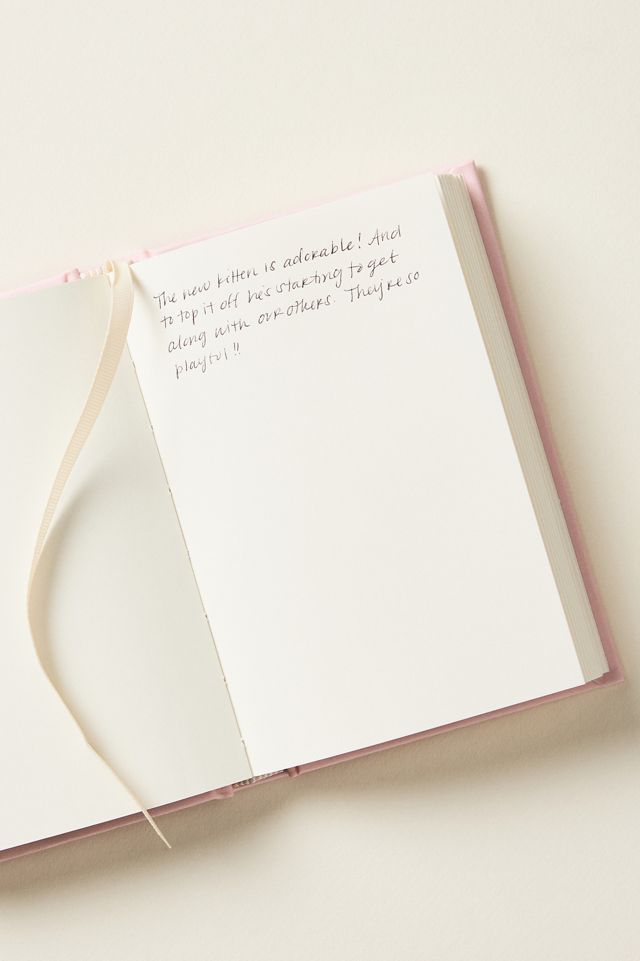 The new kitten is adorable! And
to top it off he's starting to get
along with our others. They're so
playful!!